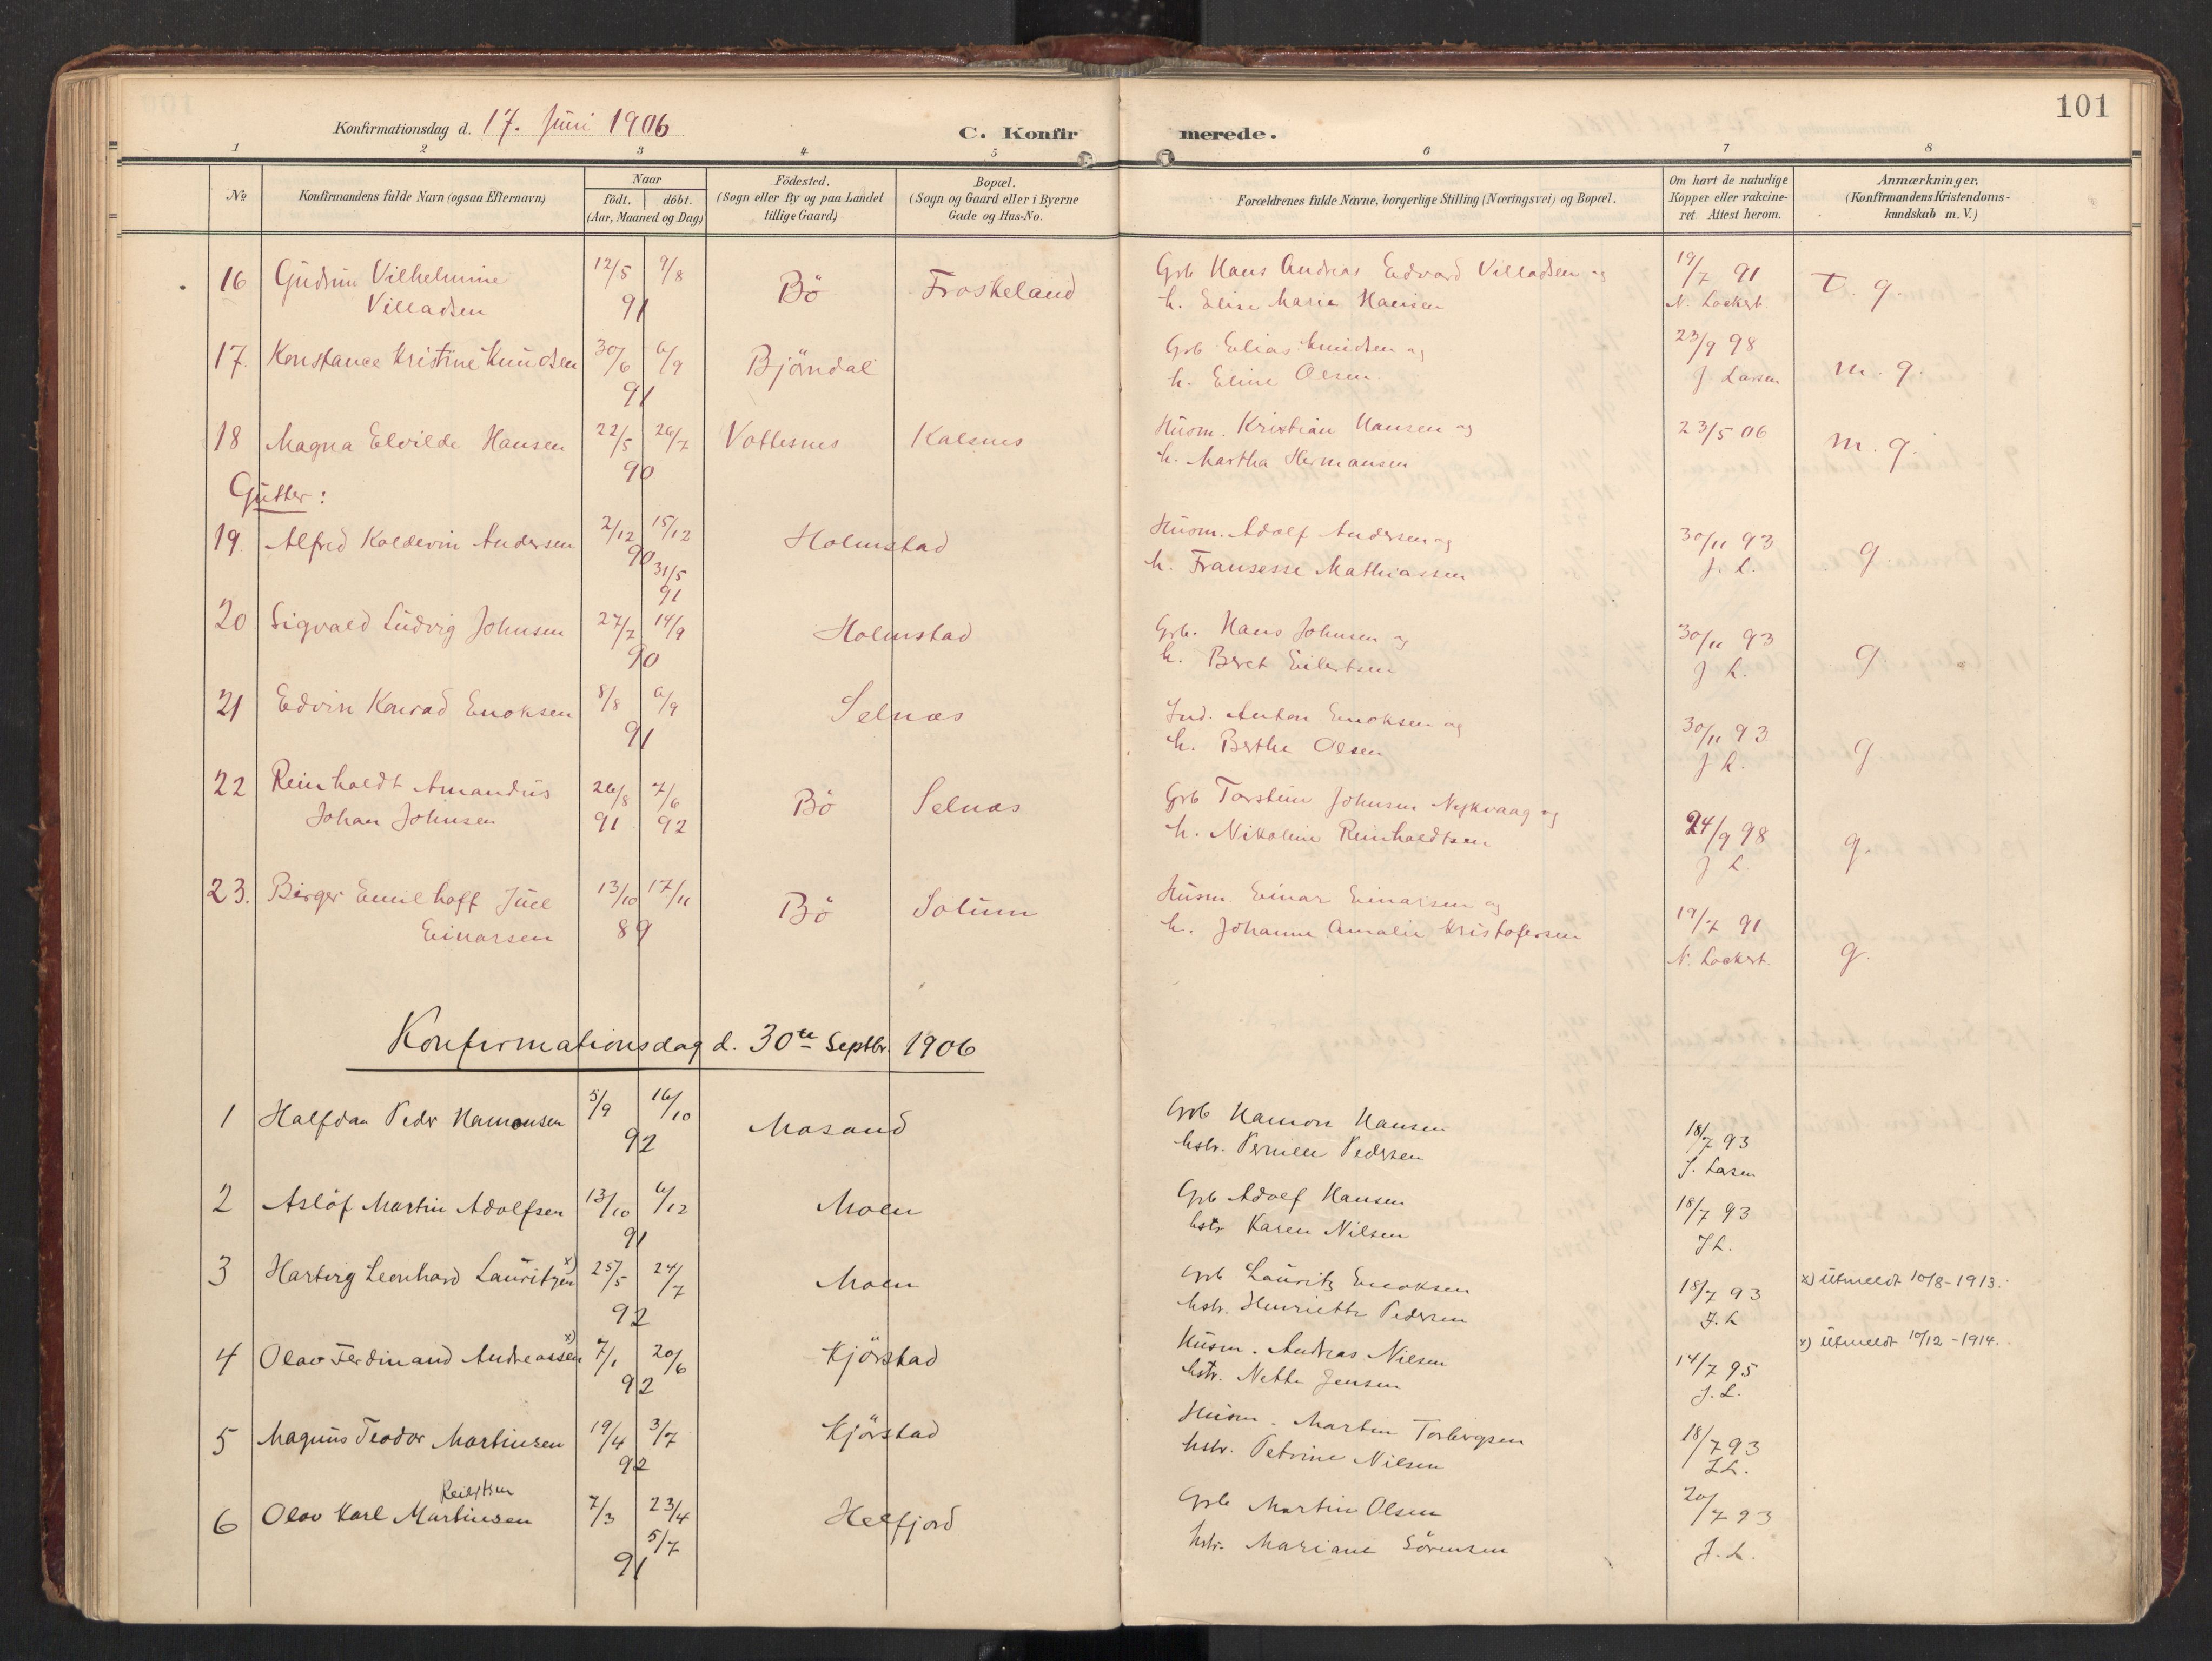 101
Konfirmationsdag d. 17. Juni 1906
C. Konfirmerede.
1 2 3 4 5 6 7 8
No
Konfirmandens fulde Navn (ogsaa Efternavn)
Naar
födt. döbt.
(Aar, Maaned og Dag)
Födested.
(Sogn eller By og paa Landet
tillige Gaard)
Bopæl.
(Sogn og Gaard eller i Byerne
Gade og Hus-No.
Forældrenes fulde Navne, borgerlige Stilling (Næringsvei) og Bopæl.
Om havt de naturlige
Kopper eller vakcine-
ret Attest herom.
Anmærkninger.
(Konfirmandens Kristendoms-
kundskab m. V.)
16 Gudrun Vilhelmine 12/5 9/8 Bö Froskeland Grb Hans Andreas Edvard Villadsen og 19/7 91 T. g.
Villadsen 91 h. Elise Marie Hansen N. Lockert
17. Konstance Kristine Knudsen 30/6 6/9 Bjöndal Grb Elias Knudsen og 23/9 98 m. g.
91 h. Eline Olsen J Larsen
18 Magna Elvilde Hansen 22/5 26/7 Vottesnes Kalsnes Husm. Kristian Hansen og 23/5 06 m. g.
90 h. Martha Hermansen
Gutter:
19. Alfred Koldevin Andersen 2/12 15/12 Holmstad Husm. Adolf Andersen og 30/11 93 g.
90 31/5 h. Fransesse Mathiassen J. L.
91
20 Sigvald Ludvig Johnsen 27/7 14/9 Holmstad Grb. Hans Johnsen og 30/11 93 g
90 h. Beret Eilertsen J L.
21 Edvin Konrad Enoksen 8/8 6/9 Selnæs Ind. Anton Enoksen og 30/11 93 g
91 h. Berthe Olsen J L.
22 Reinholdt Amandus 26/8 7/6 Bö Selnæs Grb Torstein Johnsen Nykvaag og 24/9 98 g.
Johan Johnsen 91 92 h. Nikoline Reinholdtsen J L.
23. Birger Emil Hoff Juel 13/10 17/11 Bö Solum Husm. Einar Einarsen og 19/7 91 g.
Einarsen 89 h. Johanne Amalie Kristofersen N. Lockert.
Konfirmationsdag d. 30te Septbr. 1906
1 Halfdan Peder Hamonsen 5/9 16/10 Masand Grb Hamon Hansen 18/7 93
92 hstr. Pernille Pedersen J. Larsen
2 Aslöf Martin Adolfsen 13/10 6/12 Moen Grb Adolf Hansen 18/7 93
91 hstr Karen Nilsen J L.
3 Hartvig Leonhard Lauritzen x) 25/5 24/7 Moen Grb Lauritz Enoksen 18/7 93 x) Utmeldt 10/8-1913.
92 hstr. Henriette Pedersen J. L
4 Olav Ferdinand Andreassen x) 7/1 20/6 Kjörstad Husm. Andreas Nilsen 14/7 95 x) Utmeldt 10/12-1914.
92 hstr. Nette Jensen J. L.
5 Magnus Teodor Martinsen 19/4 3/7 Kjörstad Husm. Martin Torbergsen 18/7 93
92 hstr. Petrine Nilsen J L.
Reiertsen
6 Olav Karl Martinsen 7/3 23/4 Helfjord Grb Martin Olsen 20/7 93
5/7 hstr. Mariane Sörensen J. L.
91